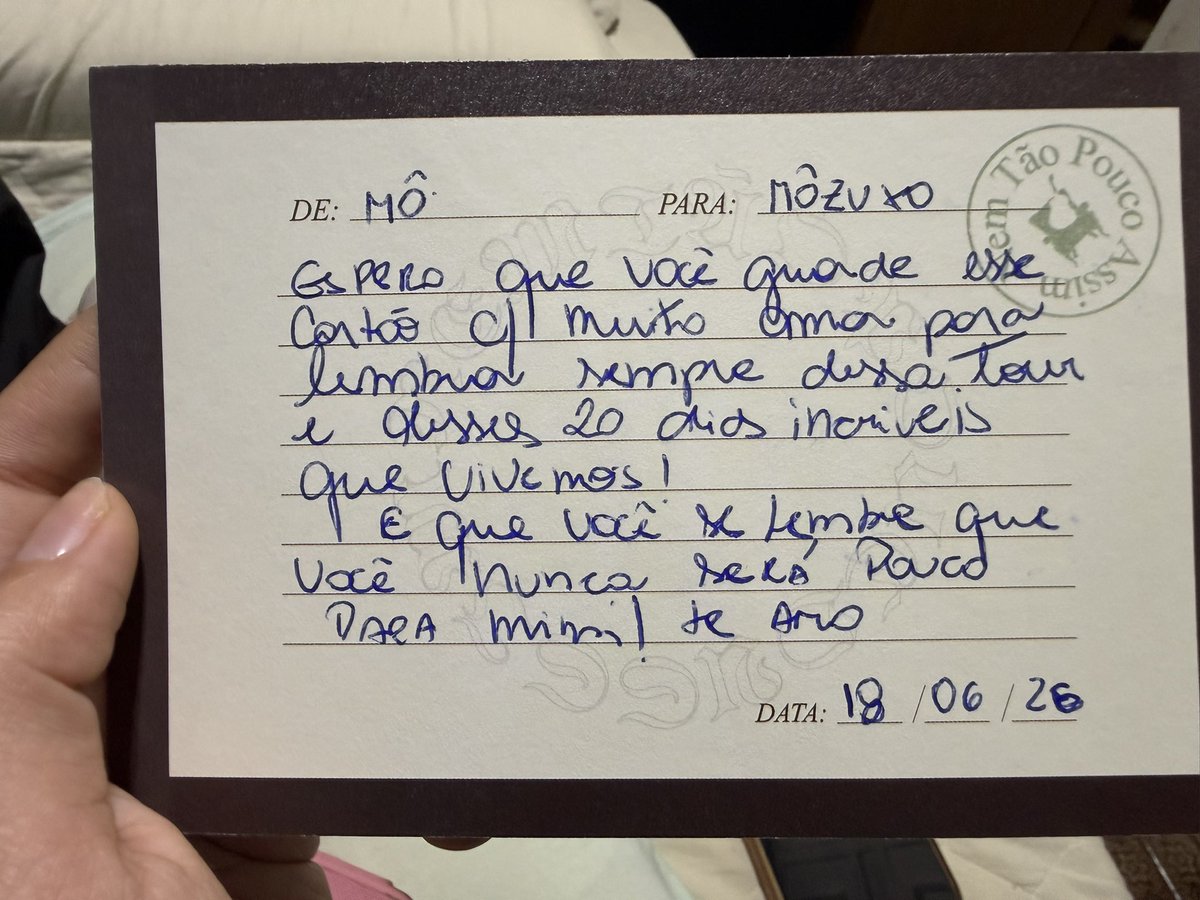 DE: MÔ PARA: MÔZUXO
Nem Tão Pouco Assim
ESPERO que você guarde esse
Cartão c/ muito amor para
lembrar sempre dessa Tour
e desses 20 dias incriveis
que vivemos!
E que você se lembre que
você nunca será Pouco
PARA mim! te AMO
DATA: 18 / 06 / 26